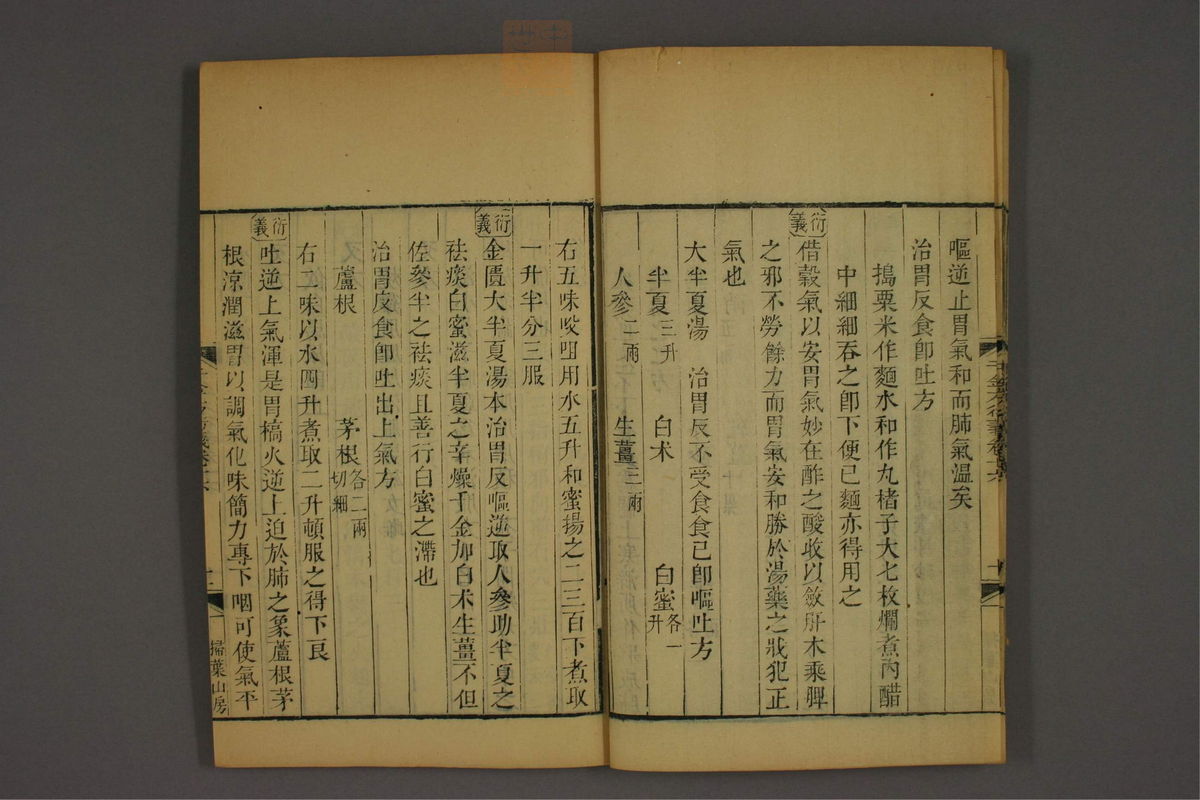 嘔逆止胃氣和而肺氣溫矣
治胃反食卽吐方
搗粟米作麵水和作丸楮子大七枚爛煮內醋
中細細吞之卽下便已麵亦得用之
衍義
借穀氣以安胃氣妙在酢之酸收以斂肝木乘脾
之邪不勞餘力而胃氣安和勝於湯藥之戕犯正
氣也
大半夏湯　治胃反不受食食已卽嘔吐方
半夏三升　白术　白蜜各一升
人參二兩　生薑三兩
右五味㕮咀用水五升和蜜揚之二三百下煮取
一升半分三服
衍義
金匱大半夏湯本治胃反嘔逆取人參助半夏之
祛痰白蜜滋半夏之辛燥千金加白术生薑不但
佐參半之祛痰且善行白蜜之滯也
治胃反食卽吐出上氣方
蘆根　茅根各二兩切細
右二味以水四升煮取二升頓服之得下良
衍義
吐逆上氣渾是胃槁火逆上迫於肺之象蘆根茅
根涼潤滋胃以調氣化味簡力專下咽可使氣平
掃葉山房